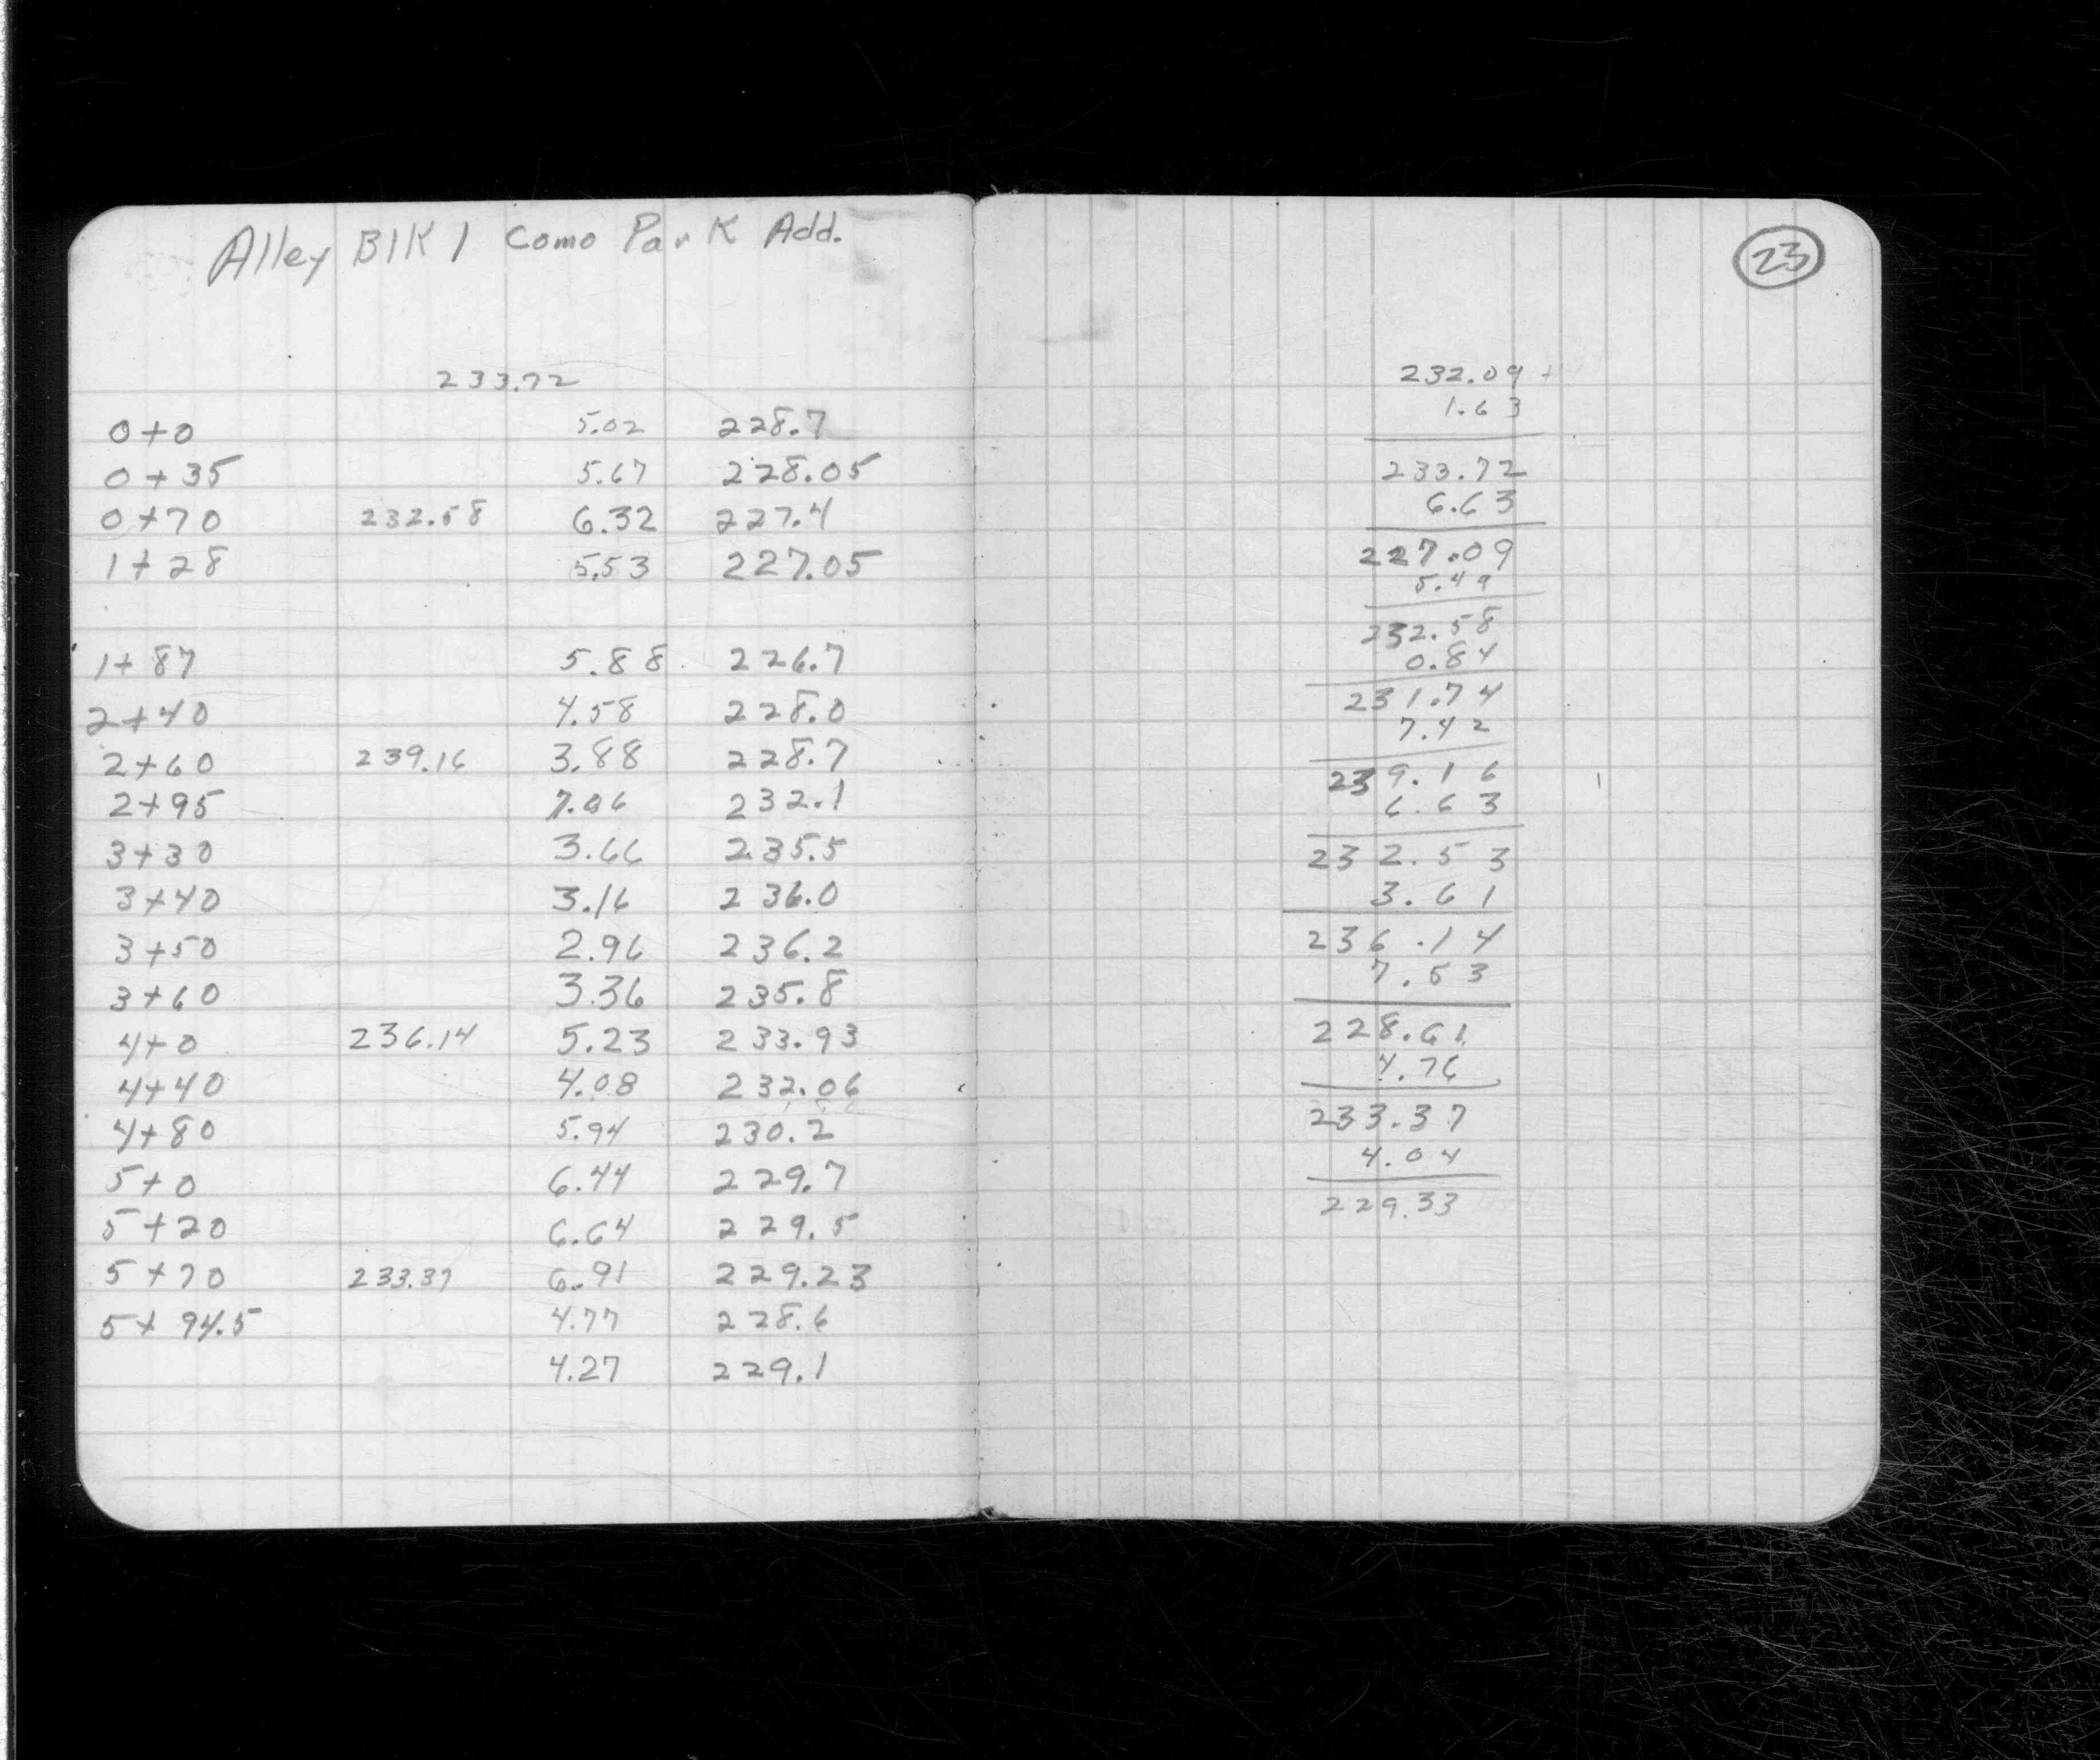 Alley Blk 1 Como Park Add.
233.72
0+0 5.02 228.7
0+35 5.67 228.05
0+70 232.58 6.32 227.4
1+28 5.53 227.05
1+87 5.88 226.7
2+40 4.58 228.0
2+60 239.16 3.88 228.7
2+95 7.06 232.1
3+30 3.66 235.5
3+40 3.16 236.0
3+50 2.96 236.2
3+60 3.36 235.8
4+0 236.14 5.23 233.93
4+40 4.08 232.06
4+80 5.94 230.2
5+0 6.44 229.7
5+20 6.64 229.5
5+70 233.37 6.91 229.23
5+94.5 4.77 228.6
4.27 229.1
23
232.09 +
1.63
233.72
6.63
227.09
5.49
232.58
0.84
231.74
7.42
239.16
6.63
232.53
3.61
236.14
7.53
228.61
4.76
233.37
4.04
229.33